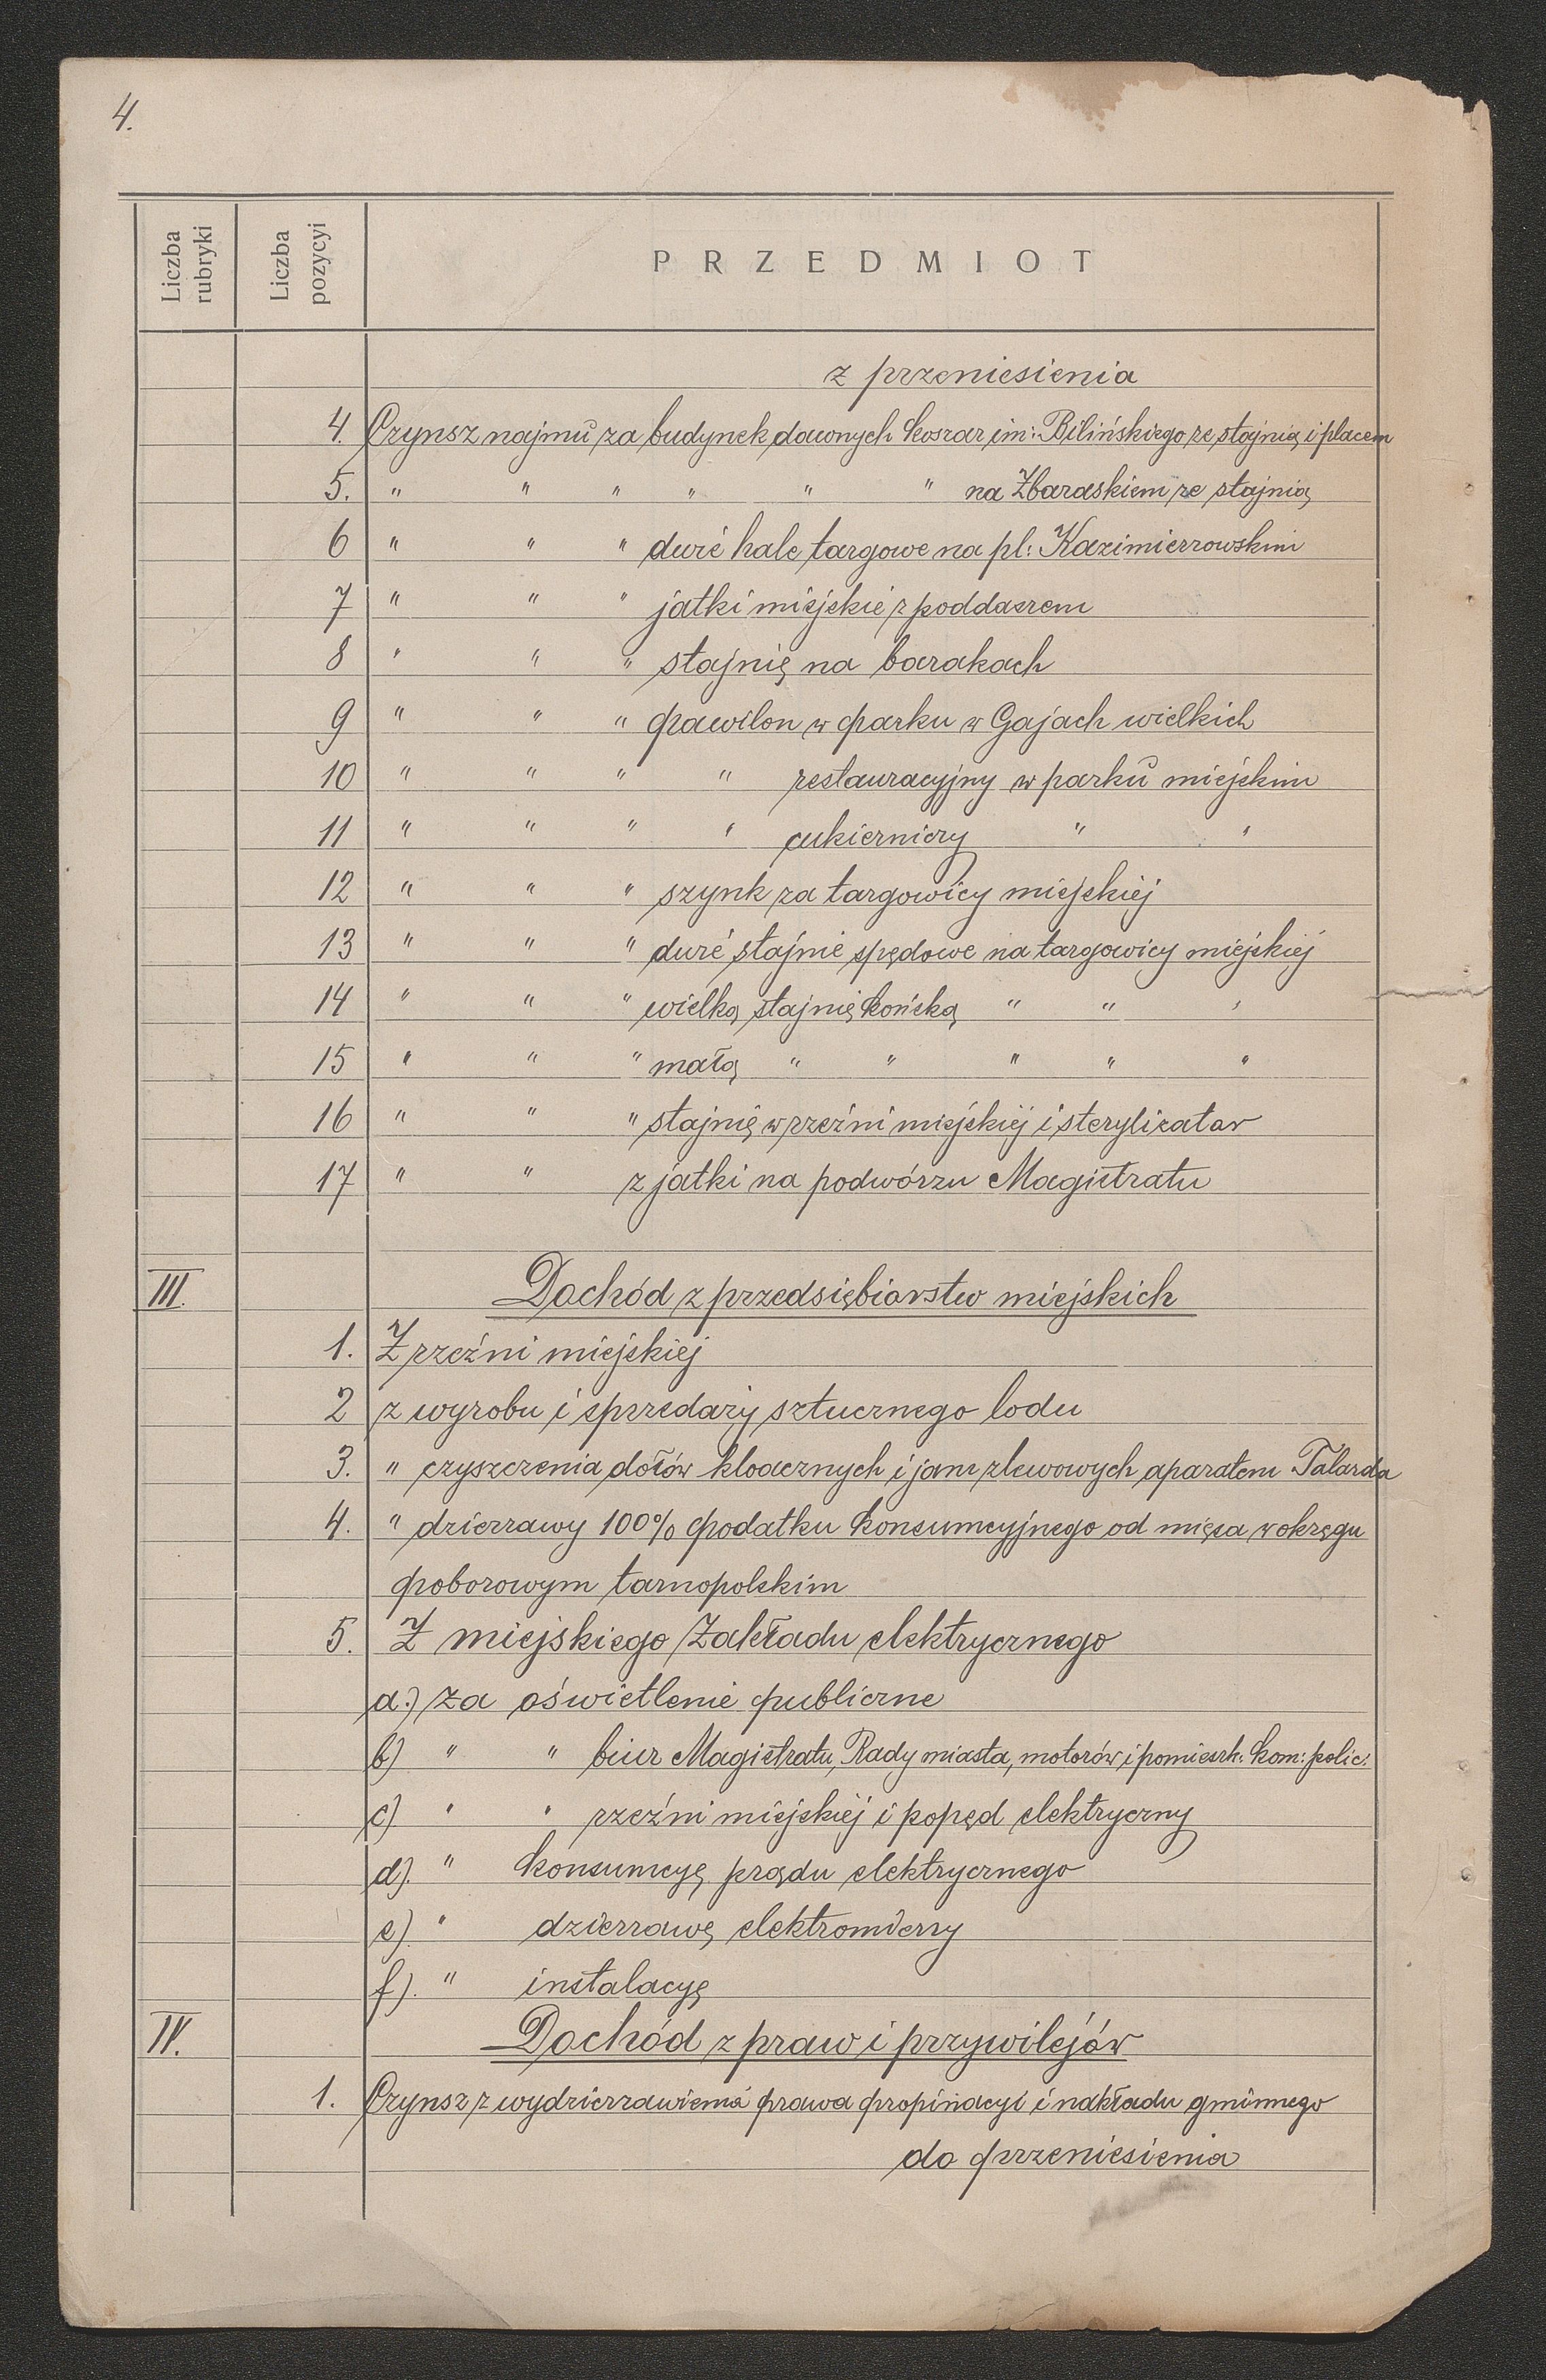 4.
Liczba rubryki
Liczba pozycyi
PRZEDMIOT
z przeniesienia
4. Czynsz najmu za budynek dawnych koszar im: Bilińskiego ze stajnią i placem
5. " " " " " " na Zbaraskiem ze stajnią
6 " " " dwie hale targowe na pl: Kazimierzowskim
7 " " " jatki miejskie z poddaszem
8 " " " stajnię na barakach
9 " " " pawilon w parku w Gajach wielkich
10 " " " " restauracyjny w parku miejskim
11 " " " " cukierniczy " "
12 " " " szynk za targowicy miejskiej
13 " " " dwie stajnie spędowe na targowicy miejskiej
14 " " " wielką stajnię końską " " "
15 " " " małą " " " " "
16 " " " stajnię w rzeźni miejskiej i sterylizator
17 " " z jatki na podwórzu Magistratu
III. Dochód z przedsiębiorstw miejskich
1. Z rzeźni miejskiej
2 z wyrobu i sprzedaży sztucznego lodu
3. " czyszczenia dołów kloacznych i jam zlewowych aparatem Talarda
4. " dzierzawy 100% podatku konsumcyjnego od mięsa w okręgu
poborowym tarnopolskim
5. Z miejskiego Zakładu elektrycznego
a.) za oświetlenie publiczne
b) " " biur Magistratu, Rady miasta, motorów i pomieszk. kom: polic:
c) " " rzeźni miejskiej i popęd elektryczny
d). " konsumcyę prądu elektrycznego
e). " dzierzawę elektromierzy
f). " instalacyę
IV. Dochód z praw i przywilejów
1. Czynsz z wydzierzawienia prawa propinacyi i nakładu gminnego
do przeniesienia